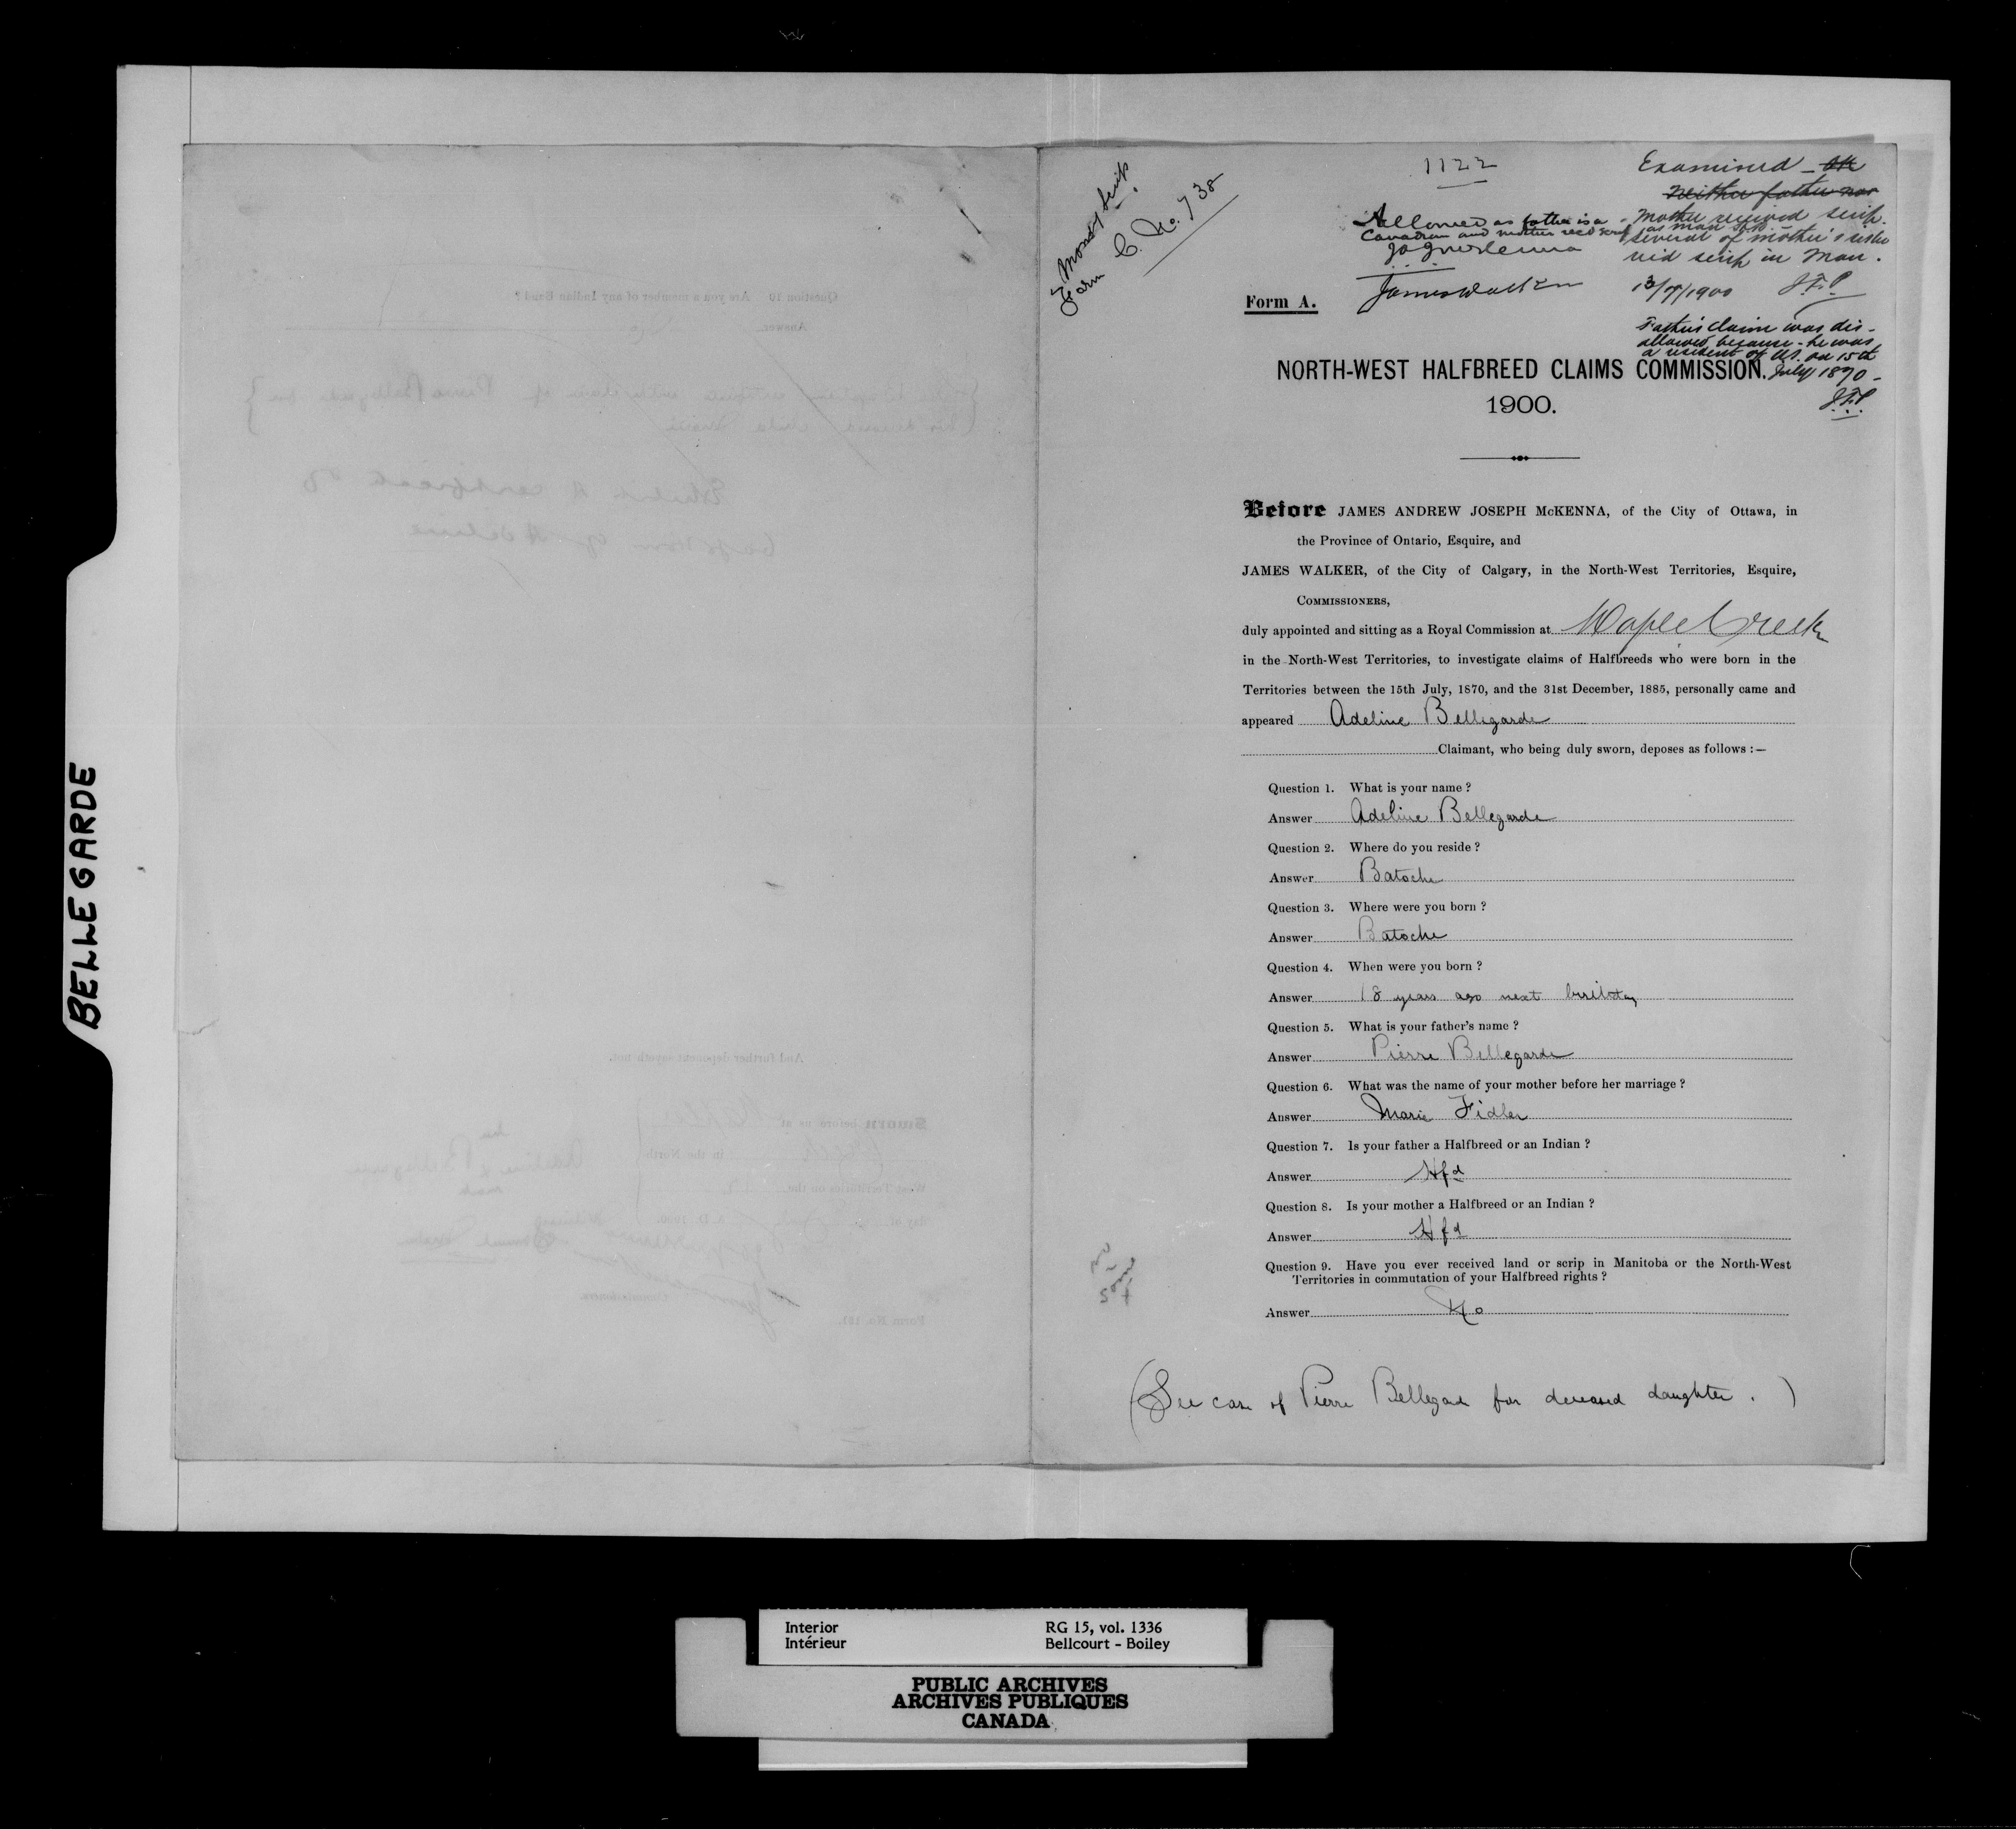 BELLEGARDE
1122
Money Scrip
Form C. No. 738
Allowed as father is a
Canadian and mother recd scrip
J A J McKenna
James Walker
Examined - OK
Neither father nor
Mother received scrip
as man
several of mother's sister
rec'd scrip in Man.
13/7/1900 J.F.P.
Father's claim was dis-
allowed because - he was
a resident of US. on 15th
July 1870 -
J.F.P.
Form A.
NORTH-WEST HALFBREED CLAIMS COMMISSION.
1900.
Before JAMES ANDREW JOSEPH McKENNA, of the City of Ottawa, in
the Province of Ontario, Esquire, and
JAMES WALKER, of the City of Calgary, in the North-West Territories, Esquire,
COMMISSIONERS,
duly appointed and sitting as a Royal Commission at Maple Creek
in the North-West Territories, to investigate claims of Halfbreeds who were born in the
Territories between the 15th July, 1870, and the 31st December, 1885, personally came and
appeared Adeline Bellegarde
Claimant, who being duly sworn, deposes as follows :—
Question 1. What is your name ?
Answer Adeline Bellegarde
Question 2. Where do you reside ?
Answer Batoche
Question 3. Where were you born ?
Answer Batoche
Question 4. When were you born ?
Answer 18 years ago next birthday
Question 5. What is your father's name ?
Answer Pierre Bellegarde
Question 6. What was the name of your mother before her marriage ?
Answer Marie Fidler
Question 7. Is your father a Halfbreed or an Indian ?
Answer Hfd
Question 8. Is your mother a Halfbreed or an Indian ?
Answer Hfd
Question 9. Have you ever received land or scrip in Manitoba or the North-West
Territories in commutation of your Halfbreed rights ?
Answer No
(See case of Pierre Bellegard for deceased daughter. )
Interior
Intérieur
RG 15, vol. 1336
Bellcourt - Boiley
PUBLIC ARCHIVES
ARCHIVES PUBLIQUES
CANADA